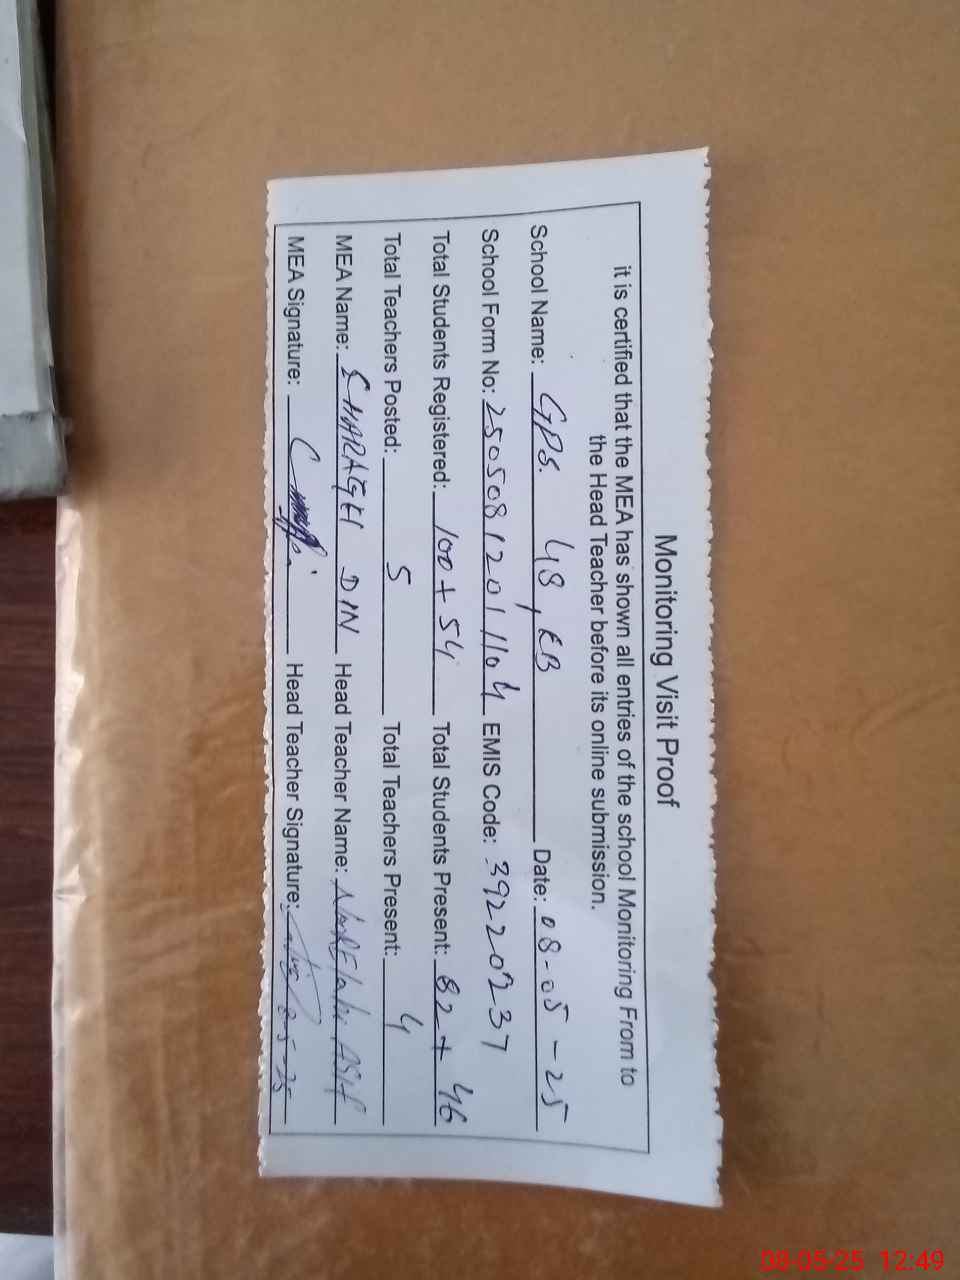 Monitoring Visit Proof
it is certified that the MEA has shown all entries of the school Monitoring From to
the Head Teacher before its online submission.
School Name: GPS. 48, EB Date: 08-05-25
School Form No: 250508120 1104 EMIS Code: 39220237
Total Students Registered: 100 + 54 Total Students Present: 82 + 46
Total Teachers Posted: 5 Total Teachers Present: 4
MEA Name: CHARAGH DIN Head Teacher Name: ASIF
MEA Signature: Head Teacher Signature: 8-5-25
08-05-25 12:49